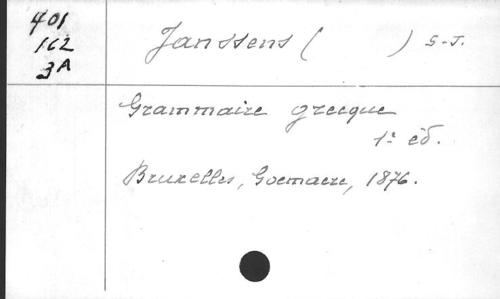 401
162
3A
Janssens ( ) S-J.
Grammaire grecque
1e éd.
Bruxelles, Goemaere, 1876.